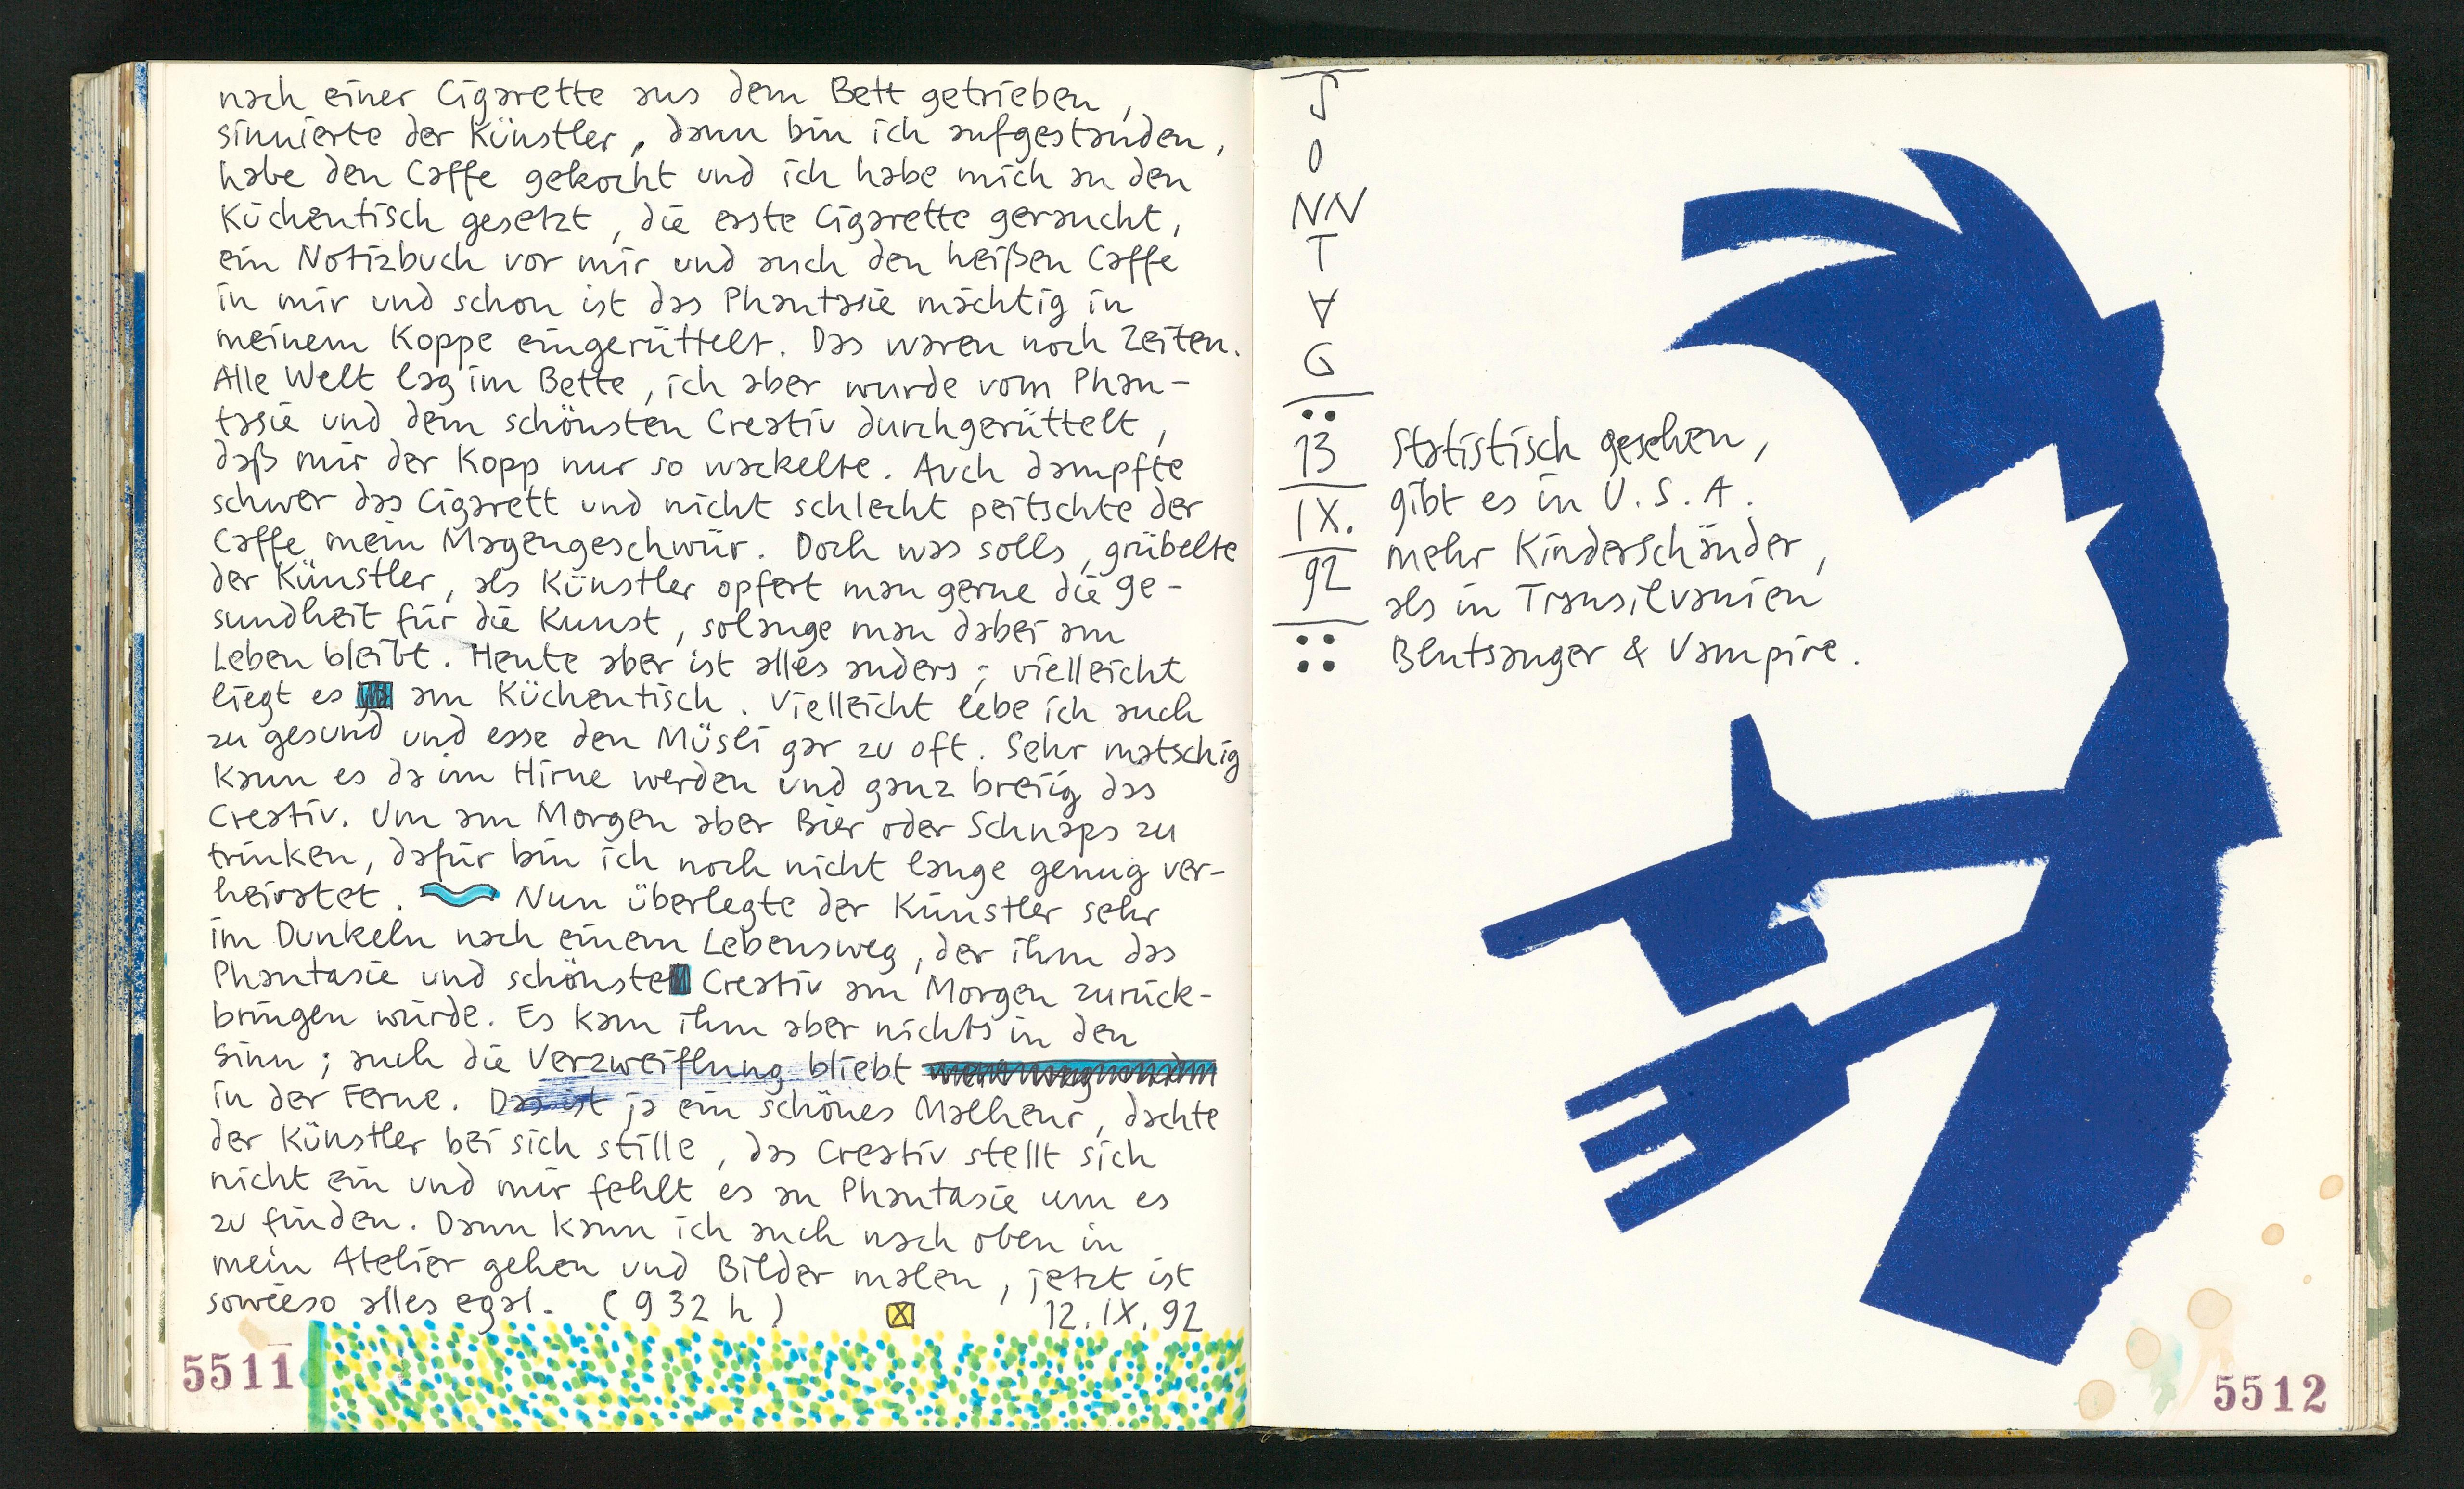 nach einer Cigarette aus dem Bett getrieben,
sinnierte der Künstler, dann bin ich aufgestanden,
habe den Caffe gekocht und ich habe mich an den
Küchentisch gesetzt, die erste Cigarette geraucht,
ein Notizbuch vor mir und auch den heißen Caffe
in mir und schon ist das Phantasie mächtig in
meinem Koppe eingerüttelt. Das waren noch Zeiten.
Alle Welt lag im Bette, ich aber wurde vom Phan-
tasie und dem schönsten Creativ durchgerüttelt,
daß mir der Kopp nur so wackelte. Auch dampfte
schwer das Cigarett und nicht schlecht peitschte der
Caffe mein Magengeschwür. Doch was solls, grübelte
der Künstler, als Künstler opfert man gerne die Ge-
sundheit für die Kunst, solange man dabei am
Leben bleibt. Heute aber ist alles anders; vielleicht
liegt es am Küchentisch. Vielleicht lebe ich auch
zu gesund und esse den Müsli gar zu oft. Sehr matschig
kann es da im Hirne werden und ganz breiig das
Creativ. Um am Morgen aber Bier oder Schnaps zu
trinken, dafür bin ich noch nicht lange genug ver-
heiratet. Nun überlegte der Künstler sehr
im Dunkeln nach einem Lebensweg, der ihm das
Phantasie und schönste Creativ am Morgen zurück-
bringen würde. Es kam ihm aber nichts in den
Sinn; auch die Verzweiflung bliebt
in der Ferne. Das ist ja ein schönes Malheur, dachte
der Künstler bei sich stille, das Creativ stellt sich
nicht ein und mir fehlt es an Phantasie um es
zu finden. Dann kann ich auch nach oben in
mein Atelier gehen und Bilder malen, jetzt ist
sowieso alles egal. (932 h) X 12.IX.92
5511
S
O
NN
T
A
G
13
IX.
92
Statistisch gesehen,
gibt es in U.S.A.
mehr Kinderschänder,
als in Transilvanien
Blutsauger & Vampire.
5512